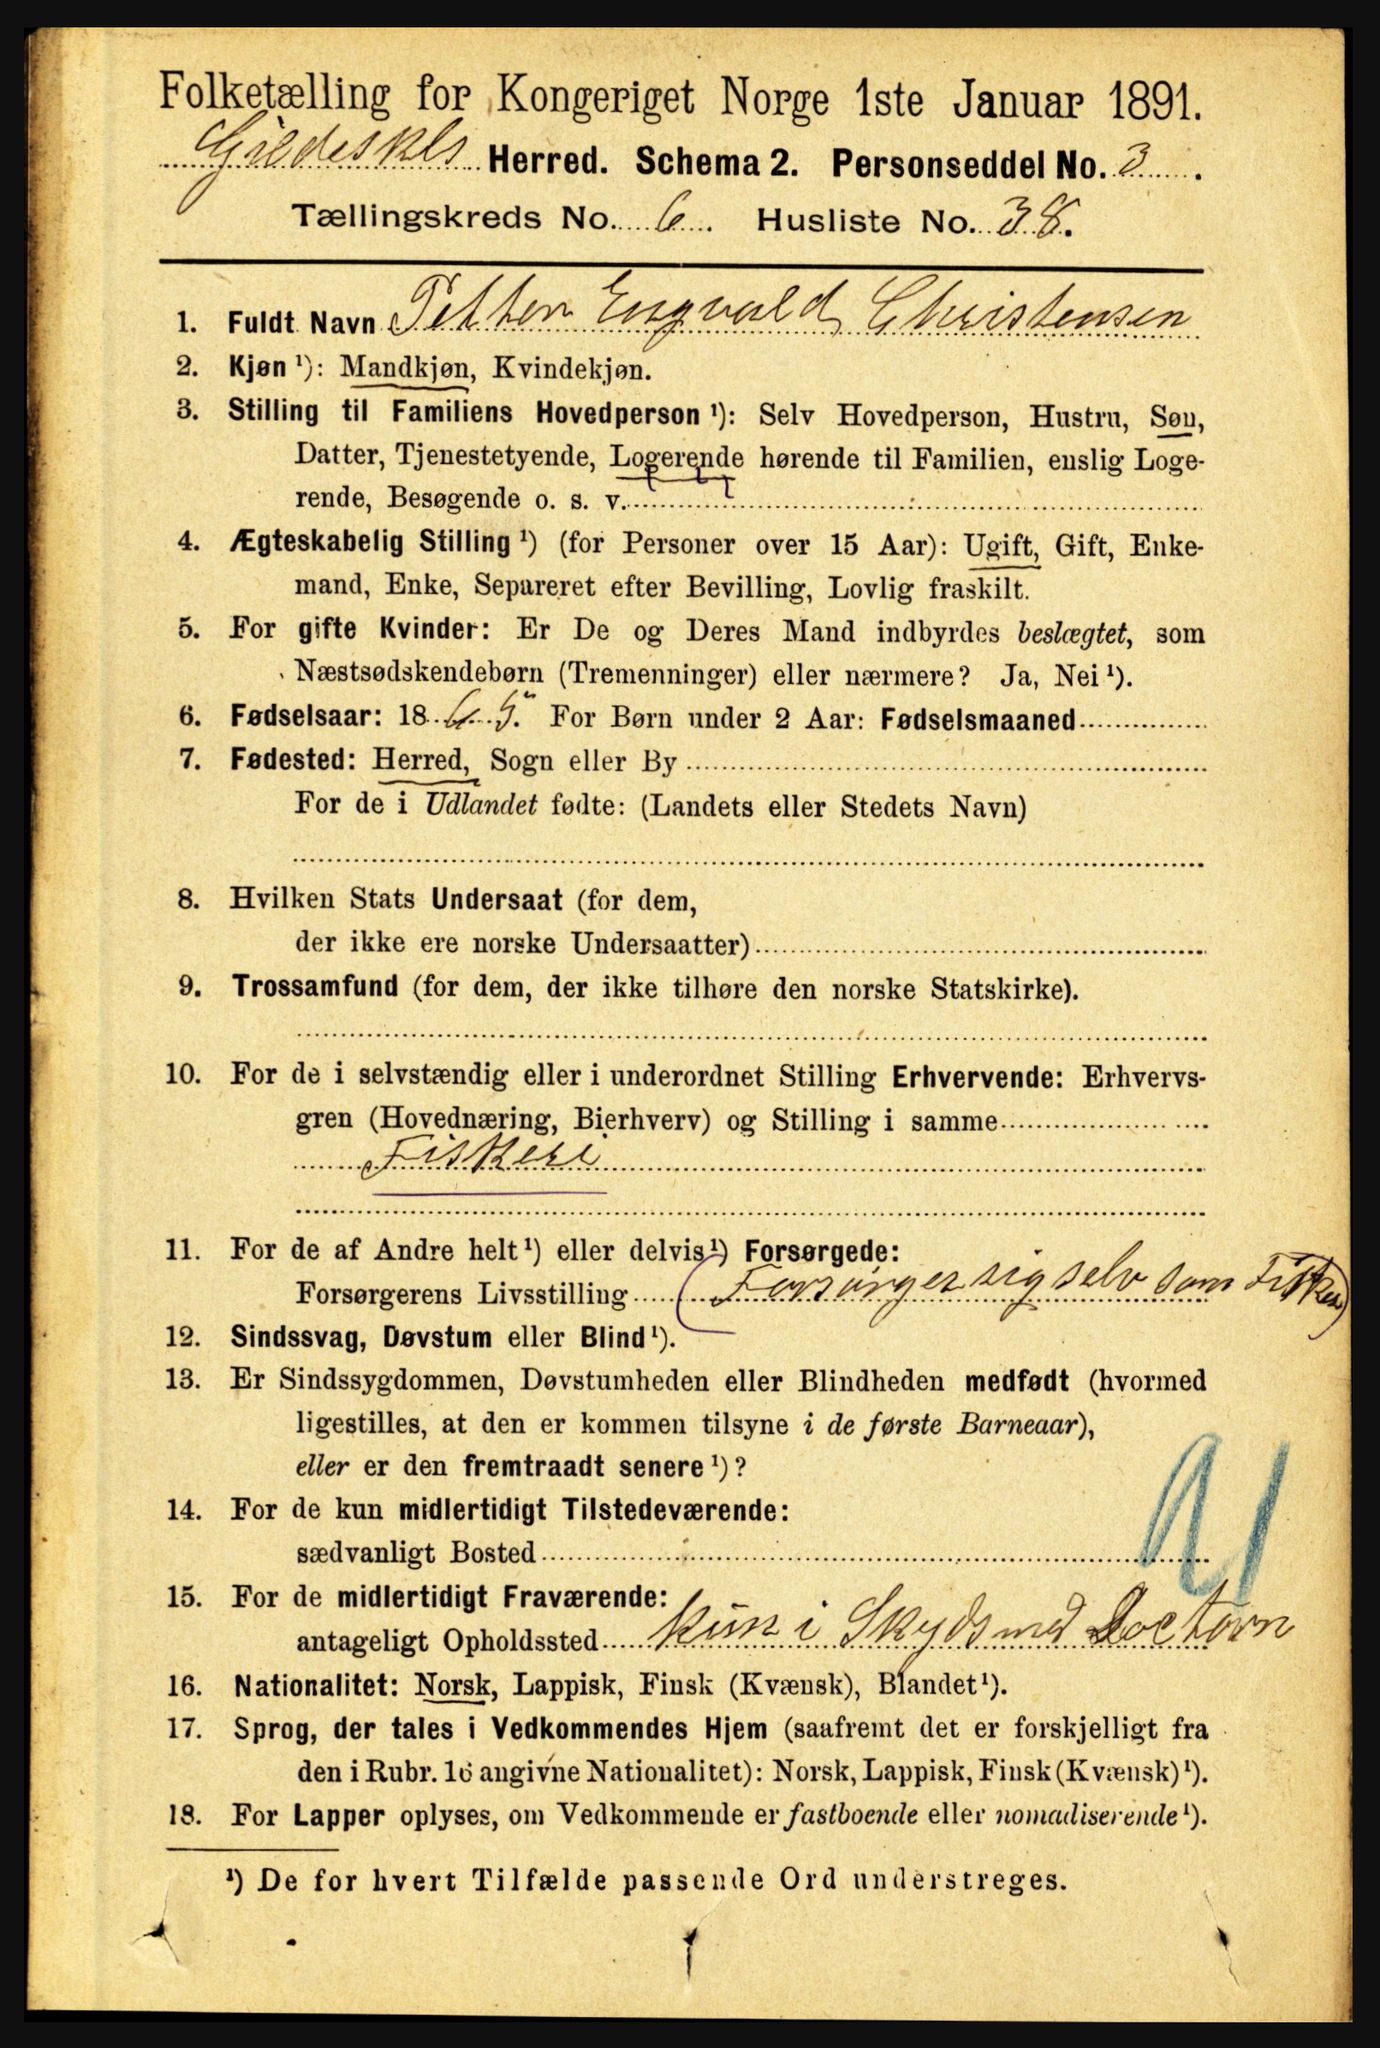 Folketælling for Kongeriget Norge 1ste Januar 1891.
Gildeskls Herred. Schema 2. Personseddel No. 3.
Tællingskreds No. 6. Husliste No. 38.
1. Fuldt Navn Petter Engvald Christensen
2. Kjøn ¹): Mandkjøn, Kvindekjøn.
3. Stilling til Familiens Hovedperson ¹): Selv Hovedperson, Hustru, Søn,
Datter, Tjenestetyende, Logerende hørende til Familien, enslig Loge-
rende, Besøgende o. s. v.
4. Ægteskabelig Stilling ¹) (for Personer over 15 Aar): Ugift, Gift, Enke-
mand, Enke, Separeret efter Bevilling, Lovlig fraskilt.
5. For gifte Kvinder: Er De og Deres Mand indbyrdes beslægtet, som
Næstsødskendebørn (Tremenninger) eller nærmere? Ja, Nei ¹).
6. Fødselsaar: 1865. For Børn under 2 Aar: Fødselsmaaned
7. Fødested: Herred, Sogn eller By
For de i Udlandet fødte: (Landets eller Stedets Navn)
8. Hvilken Stats Undersaat (for dem,
der ikke ere norske Undersaatter)
9. Trossamfund (for dem, der ikke tilhøre den norske Statskirke).
10. For de i selvstændig eller i underordnet Stilling Erhvervende: Erhvervs-
gren (Hovednæring, Bierhverv) og Stilling i samme
Fiskeri
11. For de af Andre helt ¹) eller delvis ¹) Forsørgede:
Forsørgerens Livsstilling (Forsørger sig selv som Fisker)
12. Sindssvag, Døvstum eller Blind ¹).
13. Er Sindssygdommen, Døvstumheden eller Blindheden medfødt (hvormed
ligestilles, at den er kommen tilsyne i de første Barneaar),
eller er den fremtraadt senere ¹)?
14. For de kun midlertidigt Tilstedeværende:
sædvanligt Bosted
91
15. For de midlertidigt Fraværende:
antageligt Opholdssted kun i Skyds med Doctorn
16. Nationalitet: Norsk, Lappisk, Finsk (Kvænsk), Blandet ¹).
17. Sprog, der tales i Vedkommendes Hjem (saafremt det er forskjelligt fra
den i Rubr. 16 angivne Nationalitet): Norsk, Lappisk, Finsk (Kvænsk) ¹).
18. For Lapper oplyses, om Vedkommende er fastboende eller nomadiserende ¹).
¹) De for hvert Tilfælde passende Ord understreges.